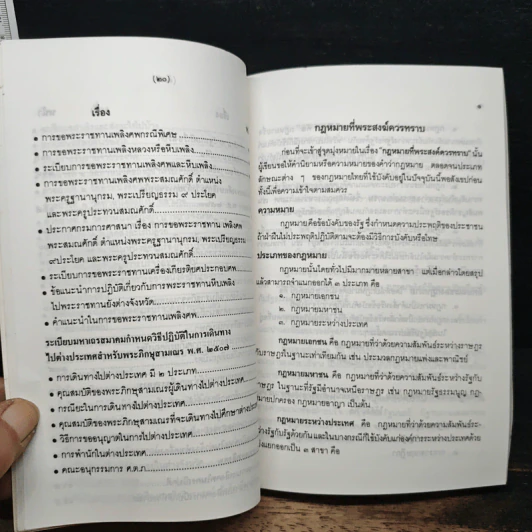 (๒๐)
เรื่อง
• การขอพระราชทานเพลิงศพกรณีพิเศษ
• การขอพระราชทานเพลิงหลวงหรือหีบเพลิง
• ระเบียบการขอพระราชทานเพลิงศพและหีบเพลิง
• การขอพระราชทานเพลิงศพพระสมณศักดิ์ ตำแหน่ง
พระครูฐานานุกรม, พระเปรียญธรรม ๙ ประโยค
และพระครูประทวนสมณศักดิ์
• ประกาศกรมการศาสนา เรื่อง การขอพระราชทาน เพลิงศพ
พระสมณศักดิ์ ตำแหน่งพระครูฐานานุกรม, พระเปรียญธรรม
๙ประโยค และพระครูประทวนสมณศักดิ์
• ระเบียบการขอพระราชทานเครื่องเกียรติยศประกอบศพ
• ข้อแนะนำการปฏิบัติเกี่ยวกับการพระราชทานหีบเพลิง
ไปพระราชทานยังต่างจังหวัด
• คำแนะนำในการขอพระราชทานเพลิงศพ
ระเบียบมหาเถรสมาคมกำหนดวิธีปฏิบัติในการเดินทาง
ไปต่างประเทศสำหรับพระภิกษุสามเณร พ.ศ. ๒๕๐๗
• การเดินทางไปต่างประเทศ มี ๒ ประเภท
• คุณสมบัติของพระภิกษุสามเณรผู้เดินทางไปต่างประเทศ
• กรณียะในการเดินทางไปต่างประเทศ
• คุณสมบัติของพระภิกษุสามเณรที่จะเดินทางไปศึกษาต่างประเทศ
• วิธีการขออนุญาตในการไปต่างประเทศ
• การพำนักในต่างประเทศ
• คณะอนุกรรมการ ศ.ต.ภ.
กฎหมายที่พระสงฆ์ควรทราบ
ก่อนที่จะเข้าสู่จุดมุ่งหมายในเรื่อง "กฎหมายที่พระสงฆ์ควรทราบ" นั้น
ผู้เขียนขอให้คำนิยามหรือความหมายของคำว่ากฎหมาย ตลอดจนประเภท
ลักษณะต่าง ๆ ของกฎหมายไทยที่ใช้บังคับอยู่ในปัจจุบันนี้พอสังเขปก่อน
ทั้งนี้เพื่อความเข้าใจตามสมควร
ความหมาย
กฎหมายคือข้อบังคับของรัฐ ซึ่งกำหนดความประพฤติของประชาชน
ถ้าฝ่าฝืนไม่ประพฤติปฏิบัติตามจะต้องมีวิธีการบังคับหรือโทษ
ประเภทของกฎหมาย
กฎหมายนั้นโดยทั่วไปมีมากมายหลายสาขา แต่เมื่อกล่าวโดยสรุป
แล้วสามารถจำแนกออกได้ ๓ ประเภท คือ
๑. กฎหมายเอกชน
๒. กฎหมายมหาชน
๓. กฎหมายระหว่างประเทศ
กฎหมายเอกชน คือ กฎหมายที่ว่าด้วยความสัมพันธ์ระหว่างราษฎร
กับราษฎรในฐานะเท่าเทียมกัน เช่น ประมวลกฎหมายแพ่งและพาณิชย์
กฎหมายมหาชน คือ กฎหมายที่ว่าด้วยความสัมพันธ์ระหว่างรัฐกับ
ราษฎร ในฐานะที่รัฐมีอำนาจเหนือราษฎร เช่น กฎหมายรัฐธรรมนูญ กฎ
หมายปกครอง กฎหมายอาญา เป็นต้น
กฎหมายระหว่างประเทศ คือ กฎหมายที่ว่าด้วยความสัมพันธ์ระหว่าง
รัฐกับรัฐด้วยกันและในบางกรณีก็ใช้บังคับแก่องค์การระหว่างประเทศด้วย
แยกออกเป็น ๓ สาขา คือ